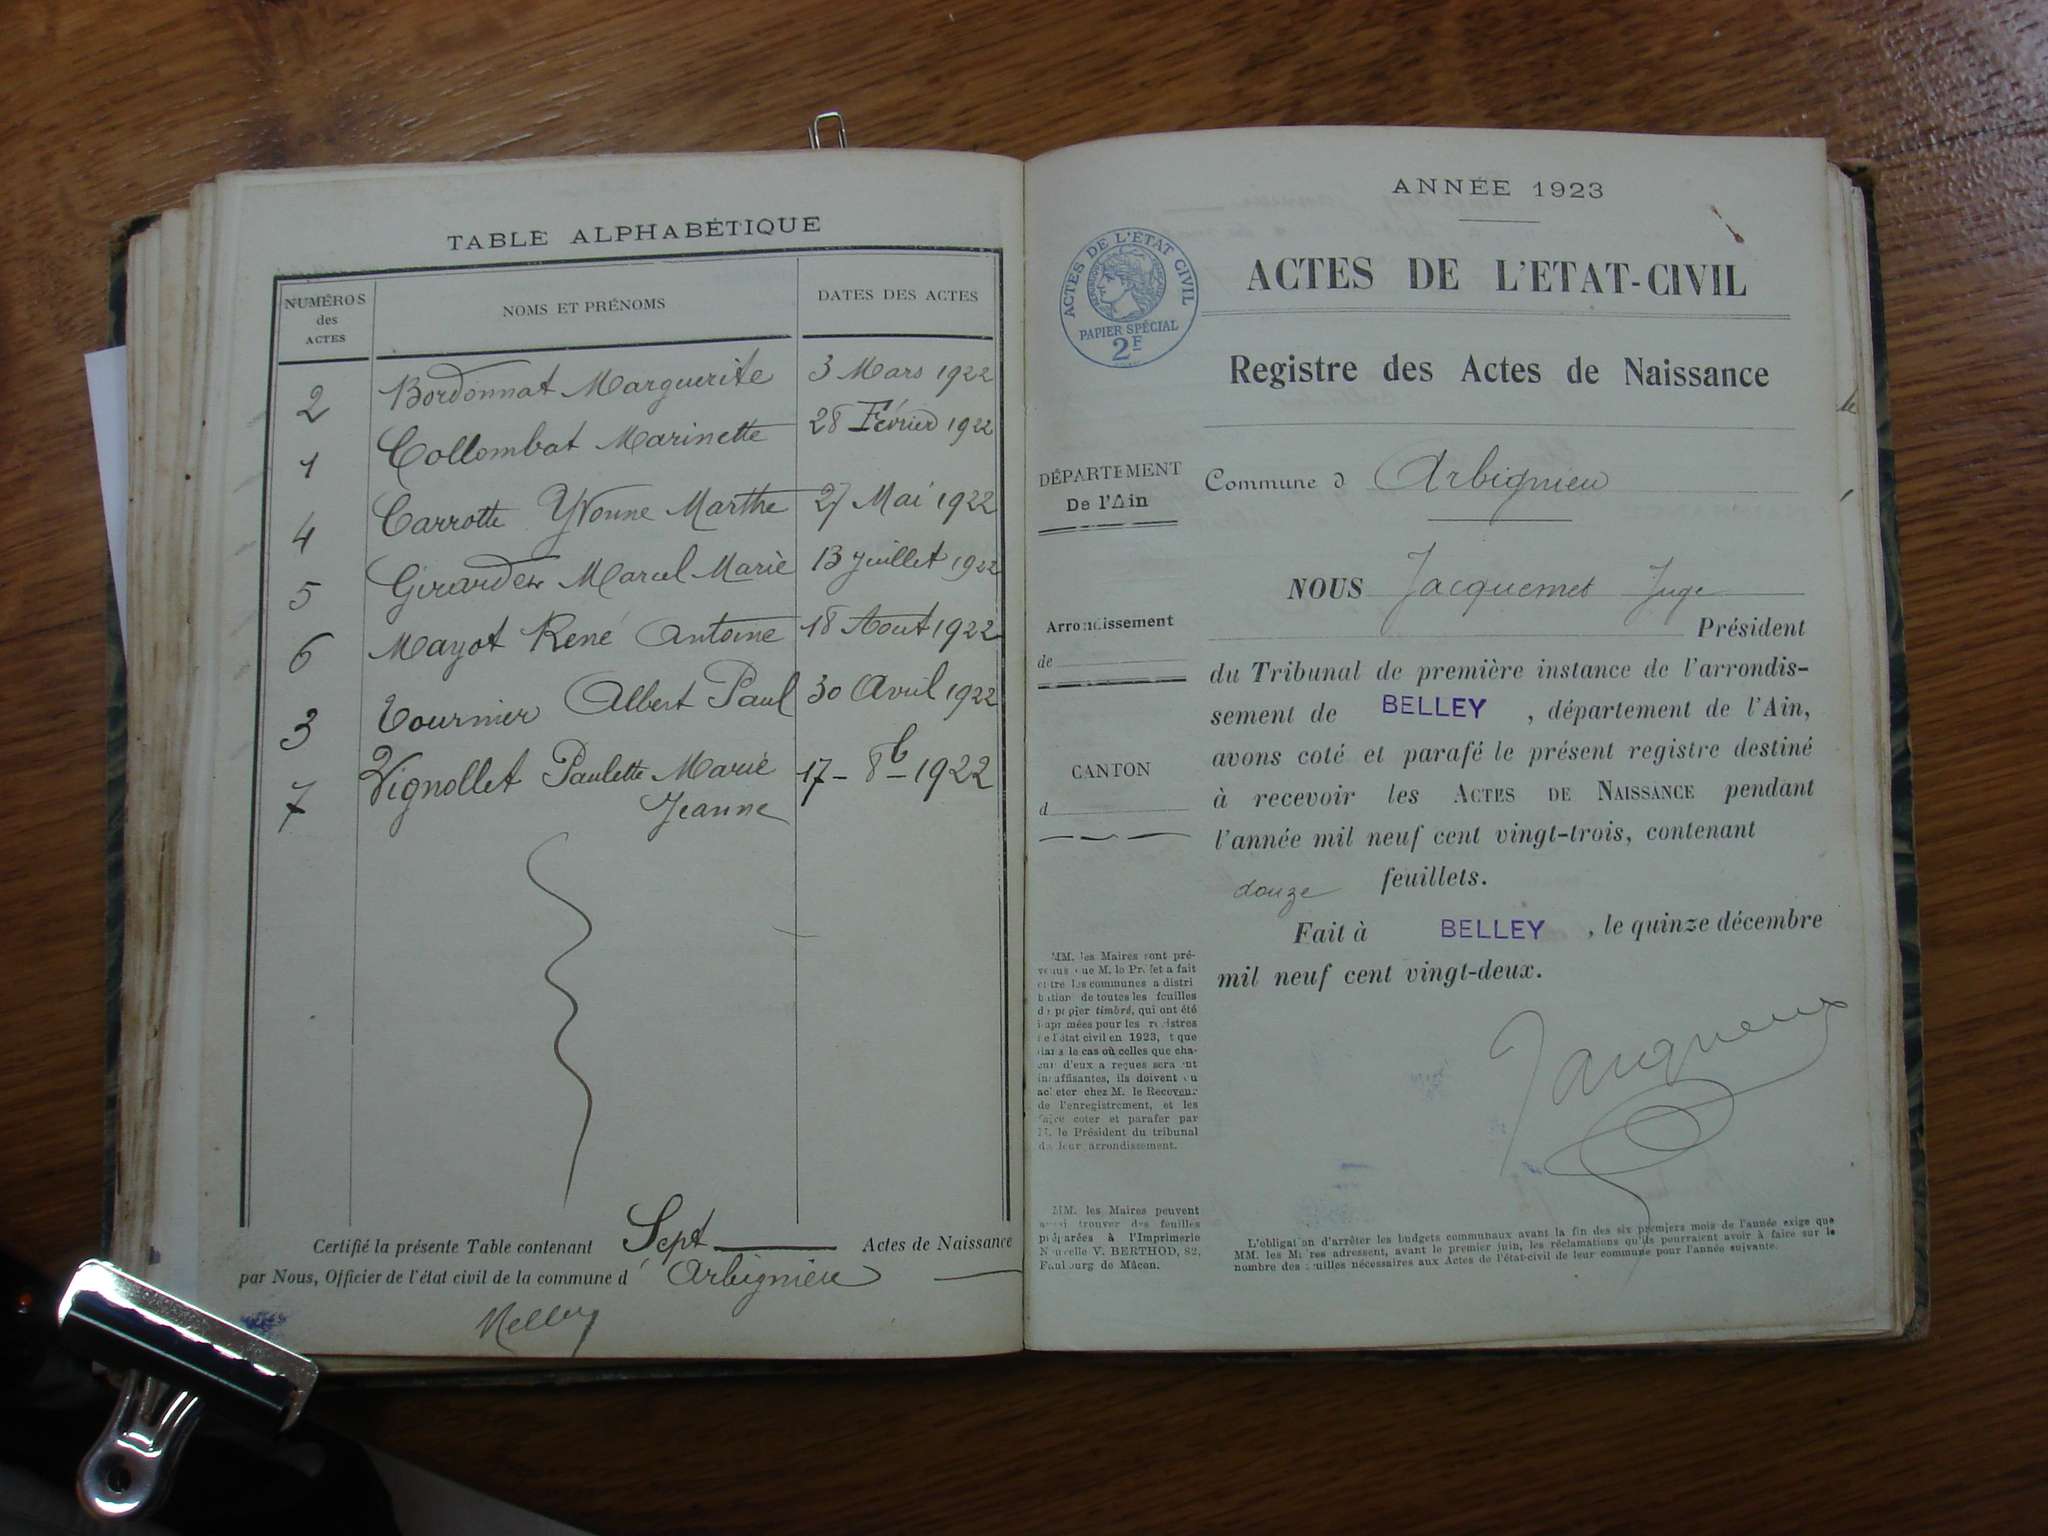 TABLE ALPHABÉTIQUE
NUMÉROS des ACTES
NOMS ET PRÉNOMS
DATES DES ACTES
2 Bordonnat Marguerite 3 Mars 1922
1 Collombat Marinette 28 Février 1922
4 Carrotte Yvonne Marthe 27 Mai 1922
5 Girardet Marcel Marie 13 Juillet 1922
6 Mayot René Antoine 18 Aout 1922
3 Tournier Albert Paul 30 Avril 1922
7 Vignollet Paulette Marie 17 - 8b - 1922
Jeanne
Certifié la présente Table contenant Sept Actes de Naissance
par Nous, Officier de l'état civil de la commune d Arbignieu
ANNÉE 1923
ACTES DE L'ÉTAT CIVIL
PAPIER SPÉCIAL
2F
ACTES DE L'ETAT-CIVIL
Registre des Actes de Naissance
DÉPARTEMENT
De l'Ain
Commune d Arbignieu
NOUS Jacquemet Juge
Président
Arrondissement
de
du Tribunal de première instance de l'arrondis-
sement de BELLEY, département de l'Ain,
avons coté et parafé le présent registre destiné
CANTON
d
à recevoir les ACTES DE NAISSANCE pendant
l'année mil neuf cent vingt-trois, contenant
douze feuillets.
Fait à BELLEY, le quinze décembre
mil neuf cent vingt-deux.
MM. les Maires sont pré-
venus que M. le Préfet a fait
entre les communes a distri
bution de toutes les feuilles
de papier timbré, qui ont été
imprimées pour les registres
de l'état civil en 1923, et que
dans le cas où celles que cha-
cun d'eux a reçues seraient
insuffisantes, ils doivent en
acheter chez M. le Receveur
de l'enregistrement, et les
faire coter et parafer par
M. le Président du tribunal
de leur arrondissement.
MM. les Maires peuvent
aussi trouver des feuilles
préparées à l'Imprimerie
Nouvelle V. BERTHOD, 82,
Faubourg de Mâcon.
L'obligation d'arrêter les budgets communaux avant la fin des six premiers mois de l'année exige que
MM. les Maires adressent, avant le premier juin, les réclamations qu'ils pourraient avoir à faire sur le
nombre des feuilles nécessaires aux Actes de l'état-civil de leur commune pour l'année suivante.